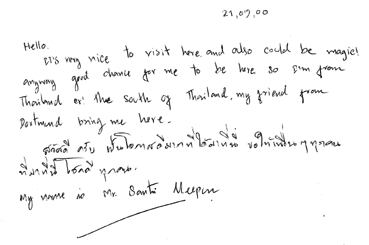 21,07,00
Hello.
It's very nice to visit here and also could be magic!
anyway good chance for me to be here so I'm from
Thailand or the south of Thailand, my friend from
Dortmund bring me here.
สวัสดี ครับ เป็นโอกาสดีมากที่ได้มาที่นี่ ขอให้เพื่อนๆ ทุกคน
ที่มาที่นี่ โชคดี ทุกคน.
My name is Mr. Santi